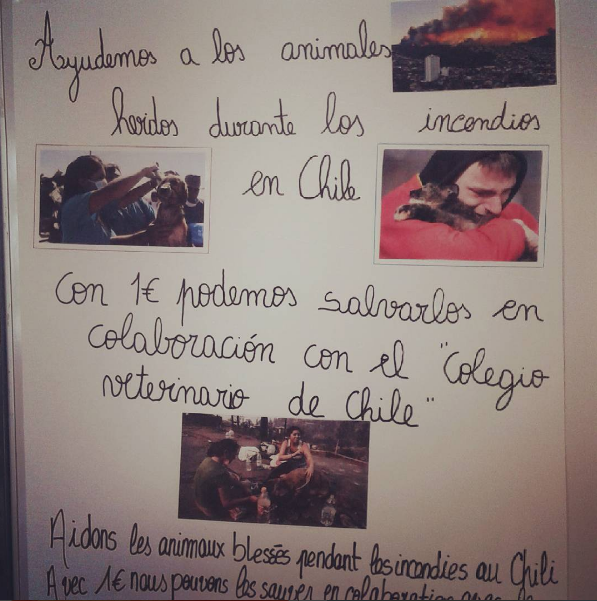 Ayudemos a los animales
heridos durante los incendios
en Chile
Con 1€ podemos salvarlos en
colaboración con el "Colegio
veterinario de Chile"
Aidons les animaux blessés pendant les incendies au Chili
Avec 1€ nous pouvons les sauver en collaboration avec le